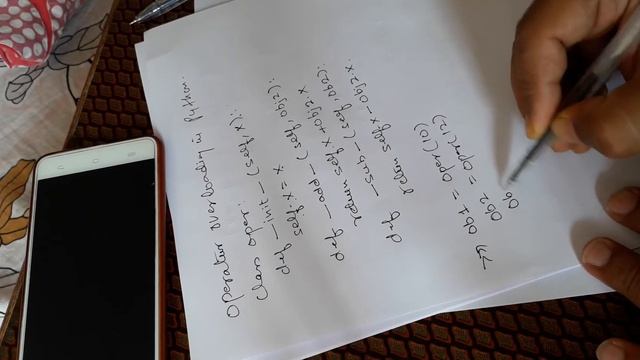 operator overloading in Python.
class oper:
def _init_ (self, x):
self.x = x
def _add_ (self, obj2):
return self.x + obj2.x
def _sub_ (self, obj2):
return self.x - obj2.x
>> ob1 = oper(10)
ob2 = oper(12)
ob